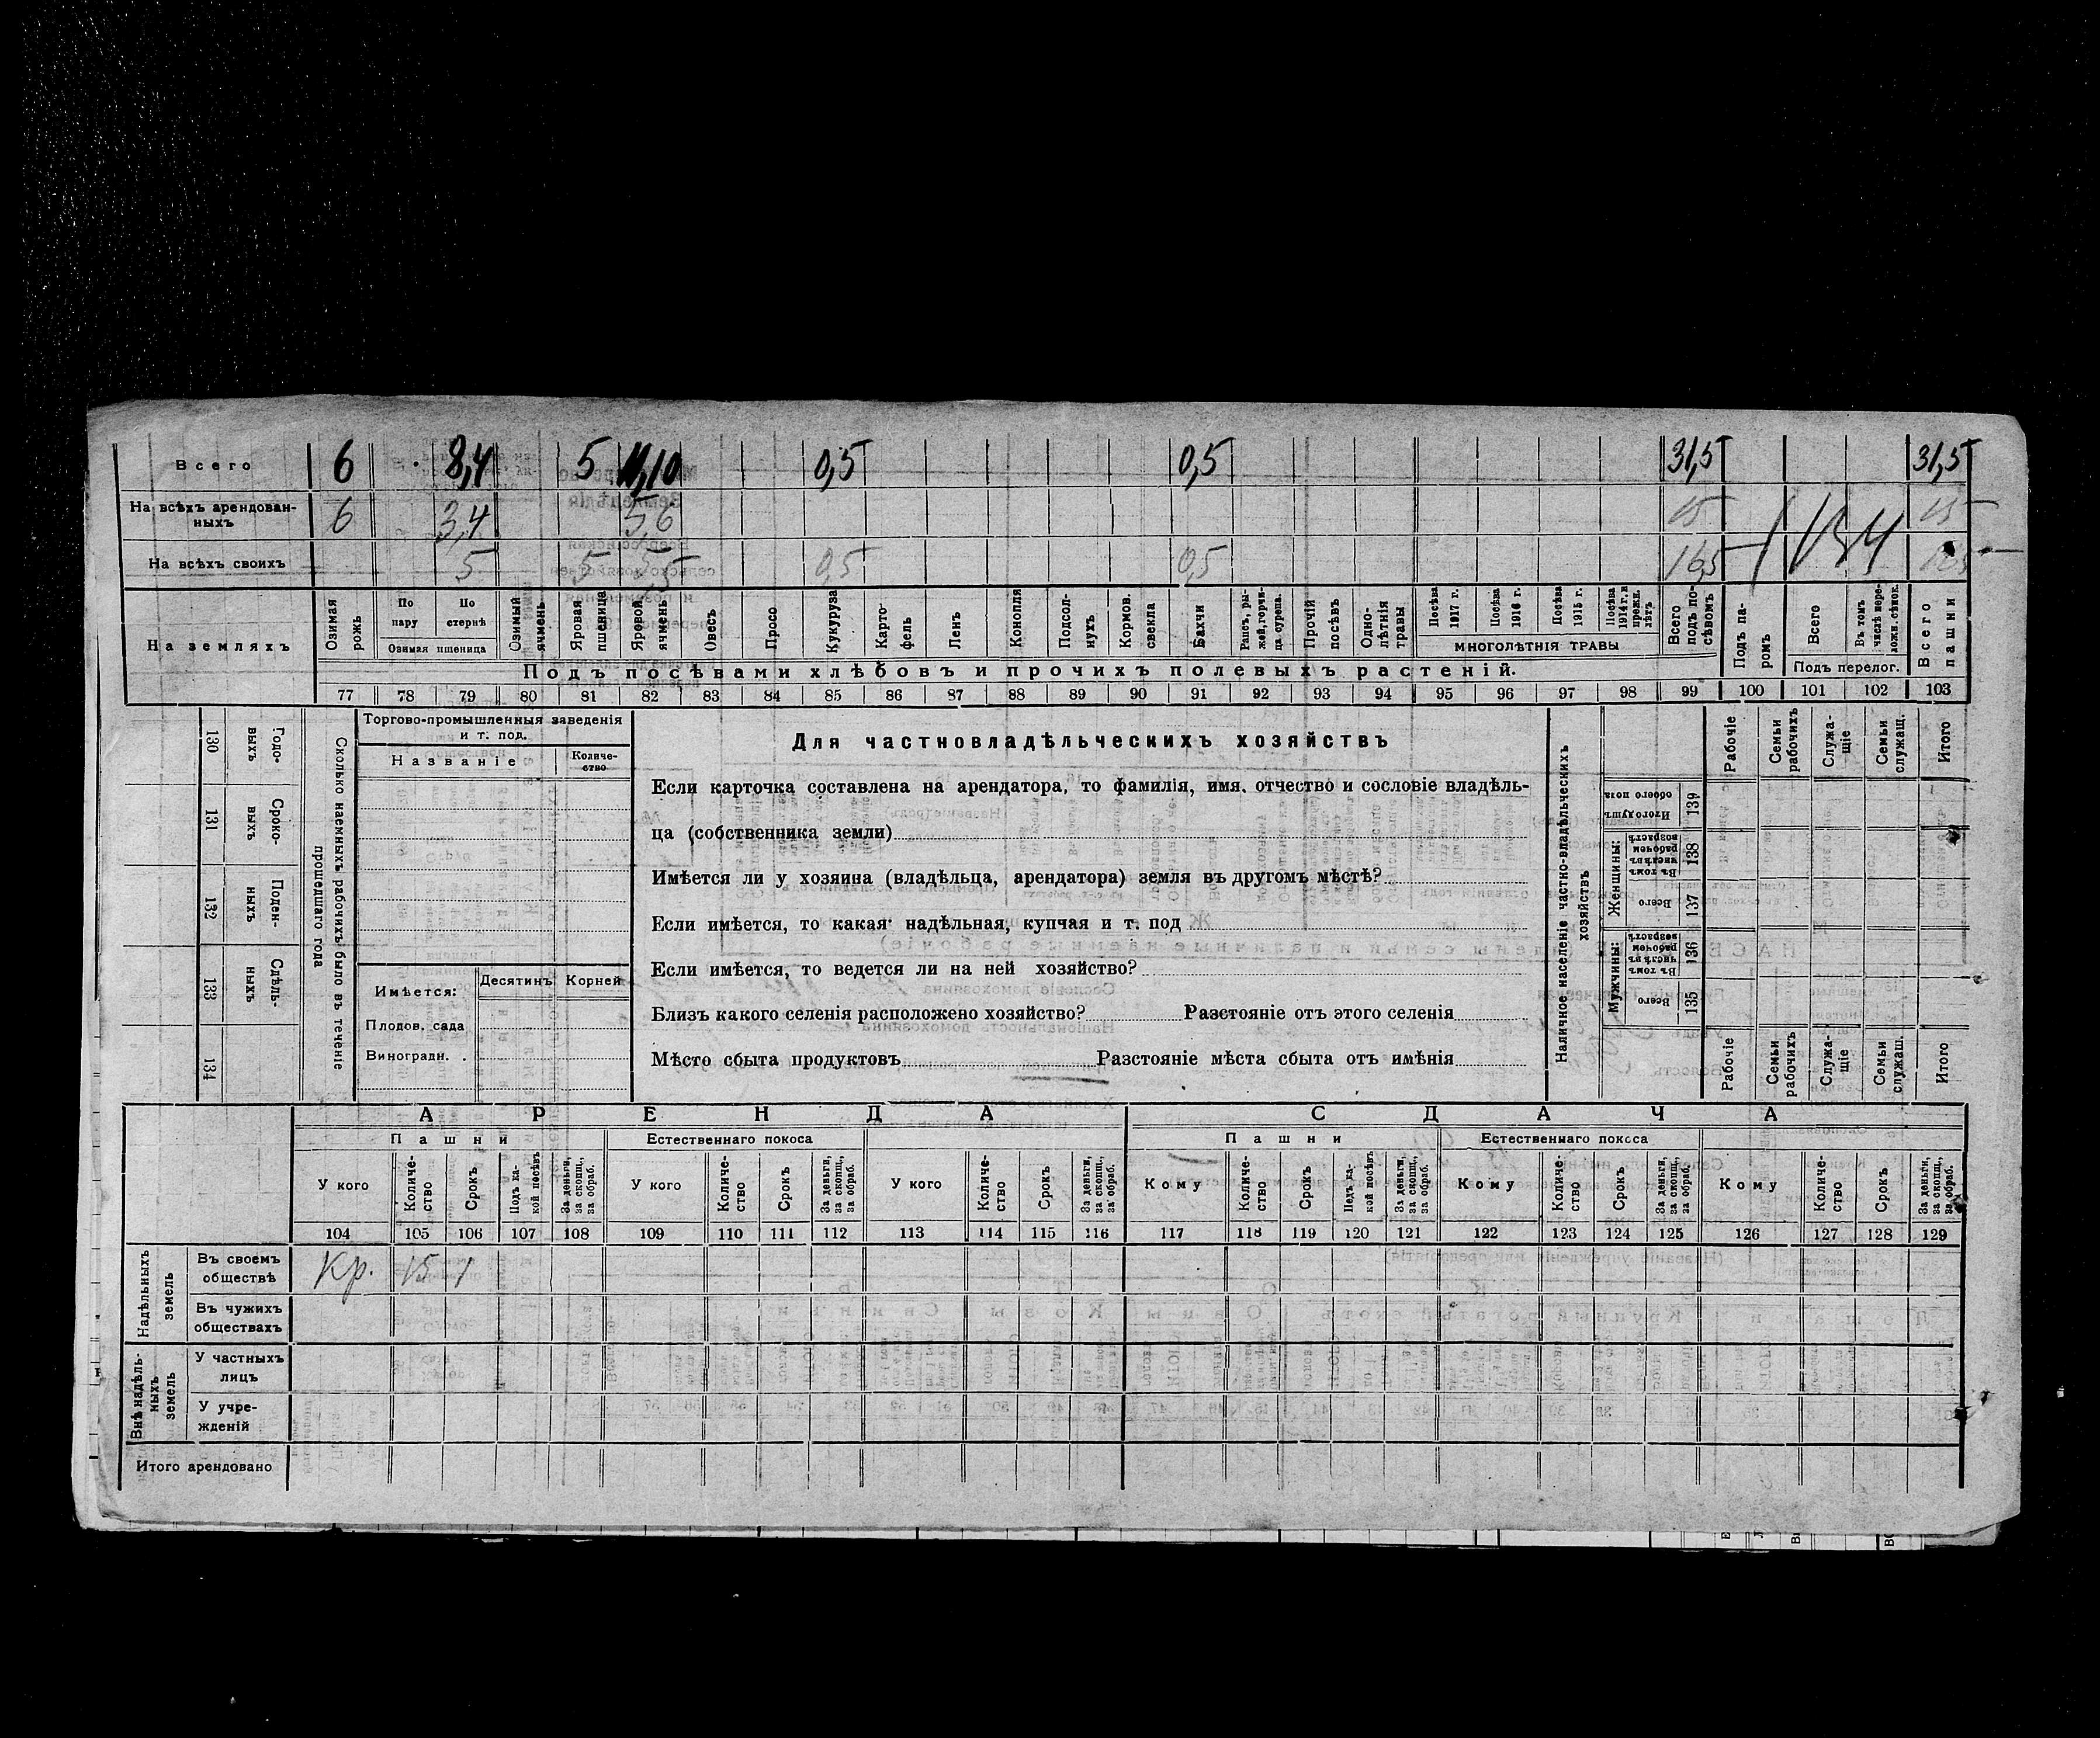 Всего 6 8,4 5 11,10 0,5 0,5 31,5 31,5
На всѣхъ арендован-
ныхъ 6 3,4 5,6 15 15
На всѣхъ своихъ 5 5 5,5 0,5 0,5 16,5
На земляхъ
Озимая рожь
По пару
По стернѣ
Озимая пшеница
Озимый ячмень
Яровая пшеница
Яровой ячмень
Овесъ
Просо
Кукуруза
Карто-
фель
Ленъ
Конопля
Подсол-
нухъ
Кормов.
свекла
Бахчи
Рапсъ, ры-
жей, горчи-
ца сурепа.
Прочій
посѣвъ
Одно-
лѣтнія
травы
Посѣва
1917 г.
Посѣва
1916 г.
Посѣва
1915 г.
Посѣва
1914 г. и
прежн.
лѣтъ
МНОГОЛѢТНІЯ ТРАВЫ
Всего
подъ по-
сѣвомъ
Подъ па-
ромъ
Всего
Въ томъ
числѣ пере-
ложн. сѣнок.
Подъ перелог.
Всего
пашни
Подъ посѣвами хлѣбовъ и прочихъ полевыхъ растеній.
77 78 79 80 81 82 83 84 85 86 87 88 89 90 91 92 93 94 95 96 97 98 99 100 101 102 103
130 Годо-
выхъ
131 Сроко-
выхъ
132 Поден-
ныхъ
133 Сдѣль-
ныхъ
134
Сколько наемныхъ рабочихъ было въ теченіе
прошедшаго года
Торгово-промышленныя заведенія
и т. под.
Названіе
Количе-
ство
Имѣется:
Десятинъ
Корней
Плодов. сада
Виноградн.
Для частновладѣльческихъ хозяйствъ
Если карточка составлена на арендатора, то фамилія, имя, отчество и сословіе владѣль-
ца (собственника земли)
Имѣется ли у хозяина (владѣльца, арендатора) земля въ другомъ мѣстѣ?
Если имѣется, то какая надѣльная, купчая и т. под
Если имѣется, то ведется ли на ней хозяйство?
Близъ какого селенія расположено хозяйство? Разстояніе отъ этого селенія
Мѣсто сбыта продуктовъ Разстояніе мѣста сбыта отъ имѣнія
Наличное населеніе частно-владѣльческихъ
хозяйствъ
Итого душъ
обоего пола
139
Женщины:
Въ томъ
числѣ въ
рабочемъ
возрастѣ
138
Всего
137
Мужчины:
Въ томъ
числѣ въ
рабочемъ
возрастѣ
136
Всего
135
Рабочіе
Семьи
рабочихъ
Служа-
щіе
Семьи
служащ.
Итого
Рабочіе
Семьи
рабочихъ
Служа-
щіе
Семьи
служащ.
Итого
АРЕНДА СДАЧА
Пашни Естественнаго покоса Пашни Естественнаго покоса
У кого
Количе-
ство
Срокъ
Подъ ка-
кой посѣвъ
За деньги,
за скопщ.,
за обраб.
У кого
Количе-
ство
Срокъ
За деньги,
за скопщ.,
за обраб.
У кого
Количе-
ство
Срокъ
За деньги,
за скопщ.,
за обраб.
Кому
Количе-
ство
Срокъ
Подъ ка-
кой посѣвъ
За деньги,
за скопщ.,
за обраб.
Кому
Количе-
ство
Срокъ
За деньги,
за скопщ.,
за обраб.
Кому
Количе-
ство
Срокъ
За деньги,
за скопщ.,
за обраб.
104 105 106 107 108 109 110 111 112 113 114 115 116 117 118 119 120 121 122 123 124 125 126 127 128 129
Надѣльныхъ
земель
Въ своемъ
обществѣ Кр. 15 1
Въ чужихъ
обществахъ
Внѣ надѣль-
ныхъ
земель
У частныхъ
лицъ
У учре-
жденій
Итого арендовано